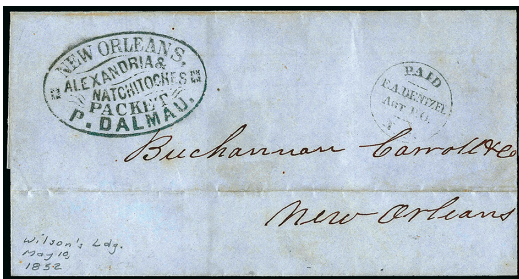 NEW ORLEANS,
ALEXANDRIA &
NATCHITOCHES
PACKET
P. DALMAU.
PAID
E.A. DENTZEL
AGT P.O.
Buchannan Carroll & Co
New Orleans
Wilson's Ldg.
May 18,
1852